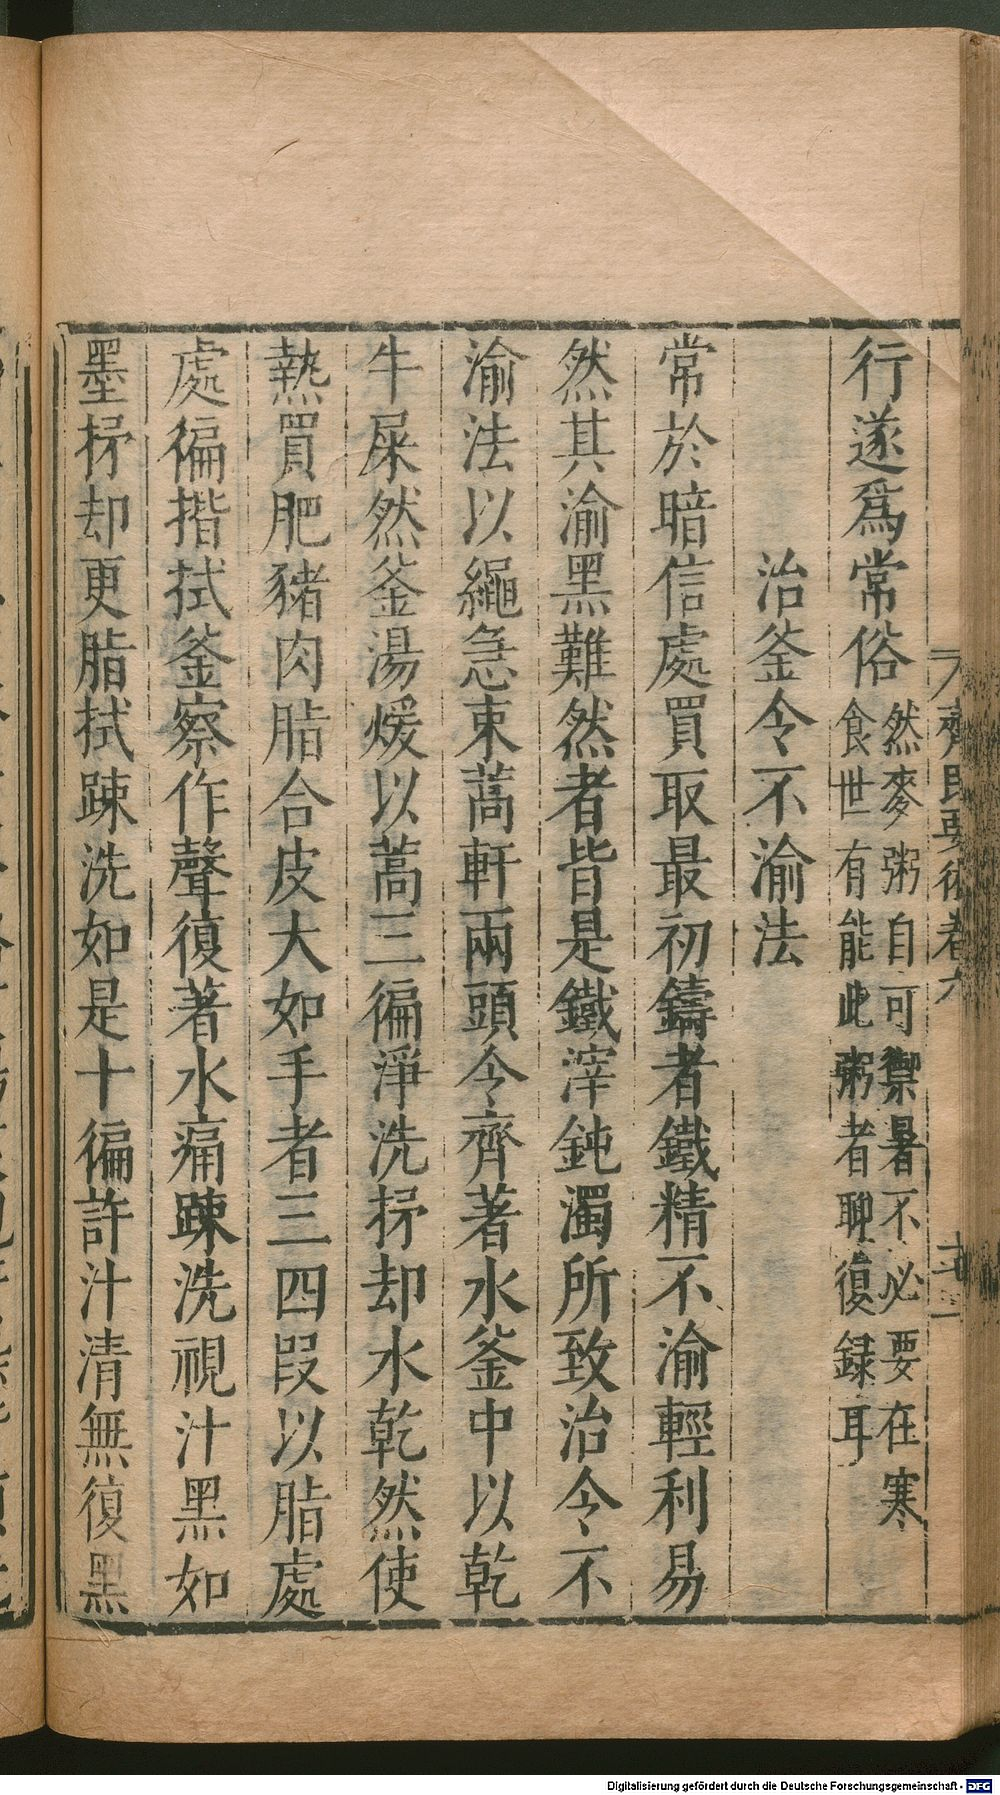 齊民要術卷六
行遂爲常俗然麥粥自可禦暑不必要在寒
食世有能此粥者聊復録耳
治釜令不渝法
常於暗信處買取最初鑄者鐵精不渝輕利易
然其渝黑難然者皆是鐵滓鈍濁所致治令不
渝法以繩急束蒿軒兩頭令齊著水釜中以乾
牛屎然釜湯煖以蒿三徧淨洗抒却水乾然使
熱買肥豬肉脂合皮大如手者三四叚以脂處
處徧揩拭釜察作聲復著水痛踈洗視汁黑如
墨抒却更脂拭踈洗如是十徧許汁清無復黑
Digitalisierung gefördert durch die Deutsche Forschungsgemeinschaft - DFG